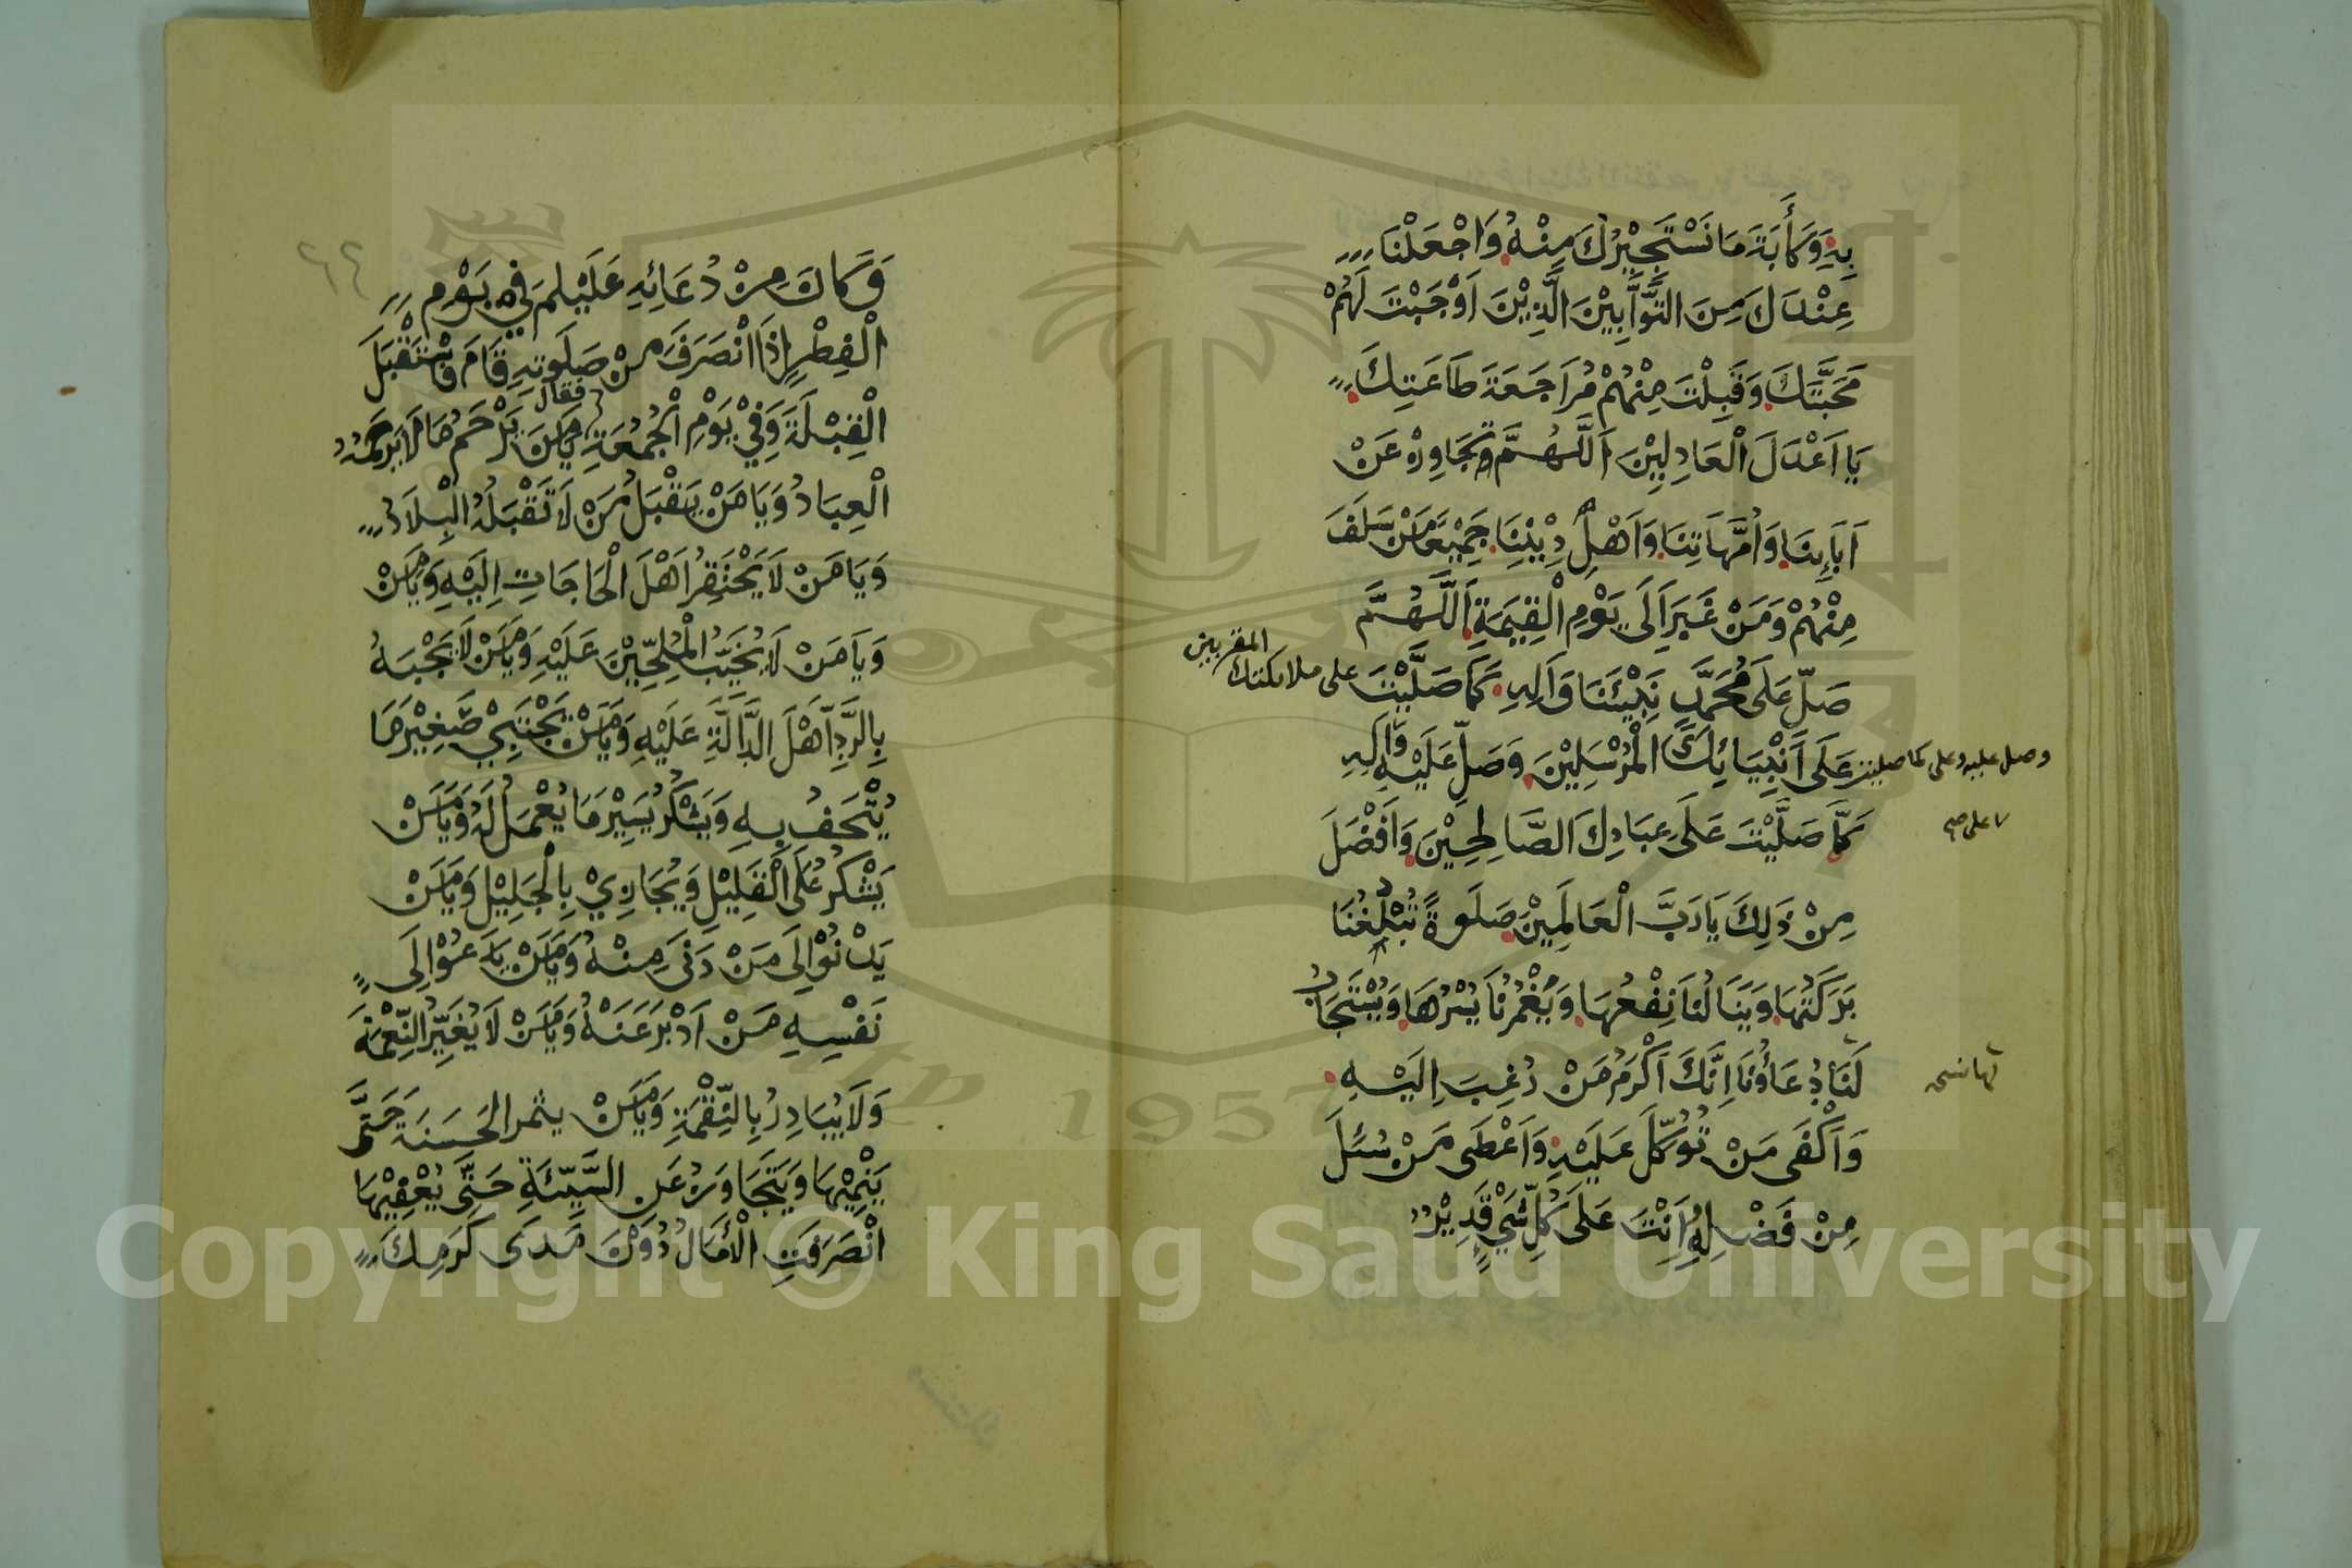 بِهِ وَكَأَبَةَ مَا نَسْتَجِيْرُكَ مِنْهُ وَاجْعَلْنَا
عِنْدَكَ مِنَ التَّوَّابِيْنَ الَّذِيْنَ اَوْجَبْتَ لَهُمْ
مَحَبَّتَكَ وَقَبِلْتَ مِنْهُمْ مُرَاجَعَةَ طَاعَتِكَ
يَا اَعْدَلَ الْعَادِلِيْنَ اَللَّهُمَّ وَتَجَاوَزْ عَنْ
اَبَاءِنَا وَاُمَّهَاتِنَا وَاَهْلِ دِيْنِنَا جَمِيْعًا مَنْ سَلَفَ
مِنْهُمْ وَمَنْ غَبَرَ اِلَى يَوْمِ الْقِيمَةِ اَللَّهُمَّ
صَلِّ عَلَى مُحَمَّدٍ نَبِيِّنَا وَآلِهِ كَمَا صَلَّيْتَ على ملائكتك المقربين
وصل عليه وعلى كما صليت عَلَى اَنْبِيَائِكَ الْمُرْسَلِيْنَ وَصَلِّ عَلَيْهِ وَآلِهِ
كَمَا صَلَّيْتَ عَلَى عِبَادِكَ الصَّالِحِيْنَ وَاَفْضَلَ
على صح
مِنْ ذَلِكَ يَا رَبَّ الْعَالَمِيْنَ صَلَوةً تَبْلُغُنَا
بَرَكَتُهَا وَيَنَالُنَا نَفْعُهَا وَيَغْمُرُنَا يُسْرُهَا وَيُسْتَجَابُ
لَنَا دُعَاؤُنَا اِنَّكَ اَكْرَمُ مَنْ رُغِبَ اِلَيْهِ
وَاَكْفَى مَنْ تُوُكِّلَ عَلَيْهِ وَاَعْطَى مَنْ سُئِلَ
مِنْ فَضْلِهِ وَاَنْتَ عَلَى كُلِّ شَيْءٍ قَدِيْرٌ
وَكَانَ مِنْ دُعَائِهِ عَلَيْلم فِيْ يَوْمِ
الْفِطْرِ اِذَا انْصَرَفَ مِنْ صَلَوتِهِ قَامَ وَاسْتَقْبَلَ
الْقِبْلَةَ وَفِيْ يَوْمِ الْجُمُعَةِ فقال يَا مَنْ يَرْحَمُ مَنْ لَا يَرْحَمُهُ
الْعِبَادُ وَيَا مَنْ يَقْبَلُ مَنْ لَا تَقْبَلُهُ الْبِلَادُ
وَيَا مَنْ لَا يَحْتَقِرُ اَهْلَ الْحَاجَاتِ اِلَيْهِ وَيَا مَنْ
وَيَا مَنْ لَا يُخَيِّبُ الْمُلِحِّيْنَ عَلَيْهِ وَيَا مَنْ لَا يَجْبَهُ
بِالرَّدِّ اَهْلَ الدَّالَّةِ عَلَيْهِ وَيَا مَنْ يَجْتَبِيْ صَغِيْرَ مَا
يُتْحَفُ بِهِ وَيَشْكُرُ يَسِيْرَ مَا يُعْمَلُ لَهُ وَيَا مَنْ
يَشْكُرُ عَلَى الْقَلِيْلِ وَيُجَازِيْ بِالْجَلِيْلِ وَيَا مَنْ
يَدْنُوْا اِلَى مَنْ دَنَى مِنْهُ وَيَا مَنْ يَدْعُوْا اِلَى
نَفْسِهِ مَنْ اَدْبَرَ عَنْهُ وَيَا مَنْ لَا يُغَيِّرُ النِّعْمَةَ
وَلَا يُبَادِرُ بِالنَّقِمَةِ وَيَا مَنْ يثمر الحَسَنَةَ حَتَّى
يَنْمِيْهَا وَيَتَجَاوَزُ عَنِ السَّيِّئَةِ حَتَّى يُعْفِيْهَا
انْصَرَفَتِ الْأَمَالُ دُوْنَ مَدَى كَرَمِكَ
Copyright © King Saud University
1957